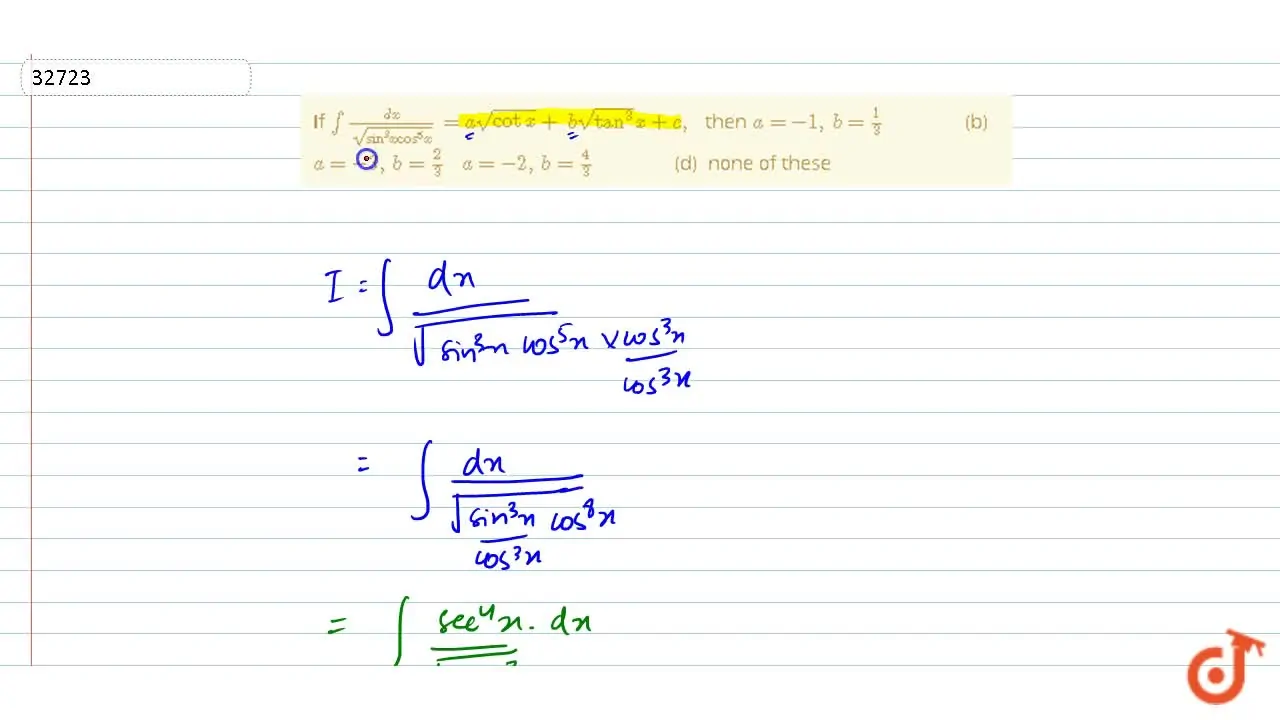 32723
If ∫ dx / √(sin³xcos⁵x) = a√(cot x) + b√(tan³ x) + c, then a = −1, b = 1/3 (b)
a = , b = 2/3 a = −2, b = 4/3 (d) none of these
I = ∫ dx / √(sin³x cos⁵x × cos³x / cos³x)
= ∫ dx / √(sin³x / cos³x cos⁸x)
= ∫ sec⁴x. dx